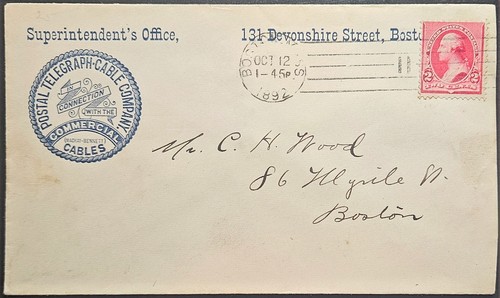 Superintendent's Office, 131 Devonshire Street, Bost
POSTAL TELEGRAPH-CABLE COMPANY.
IN
CONNECTION
WITH THE
COMMERCIAL
(MACKAY-BENNETT)
CABLES
BOSTON
OCT 12
1-45P
1892
2 2
Mr. C. H. Wood
86 Myrtle St.
Boston